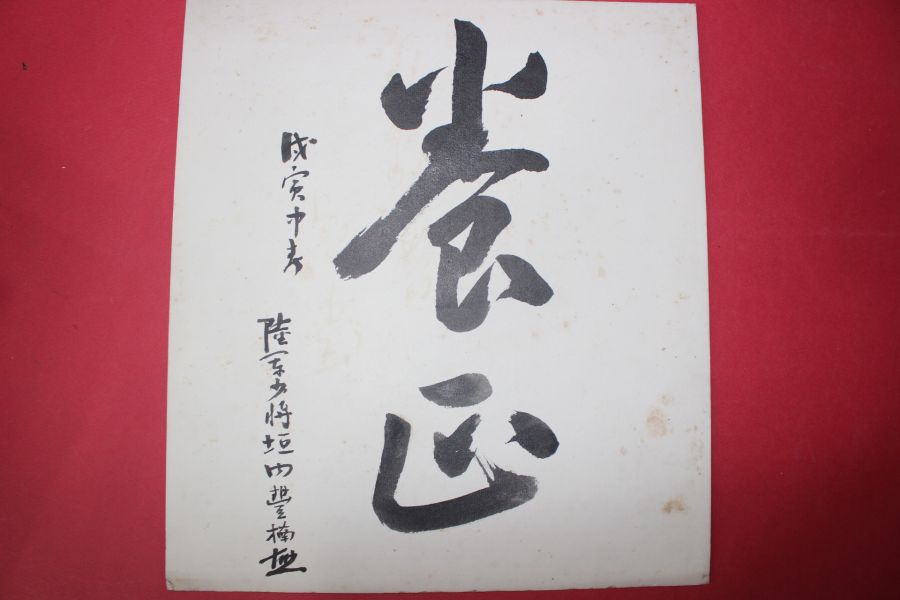 養正
戊寅中春
陸軍少将垣内豊楠